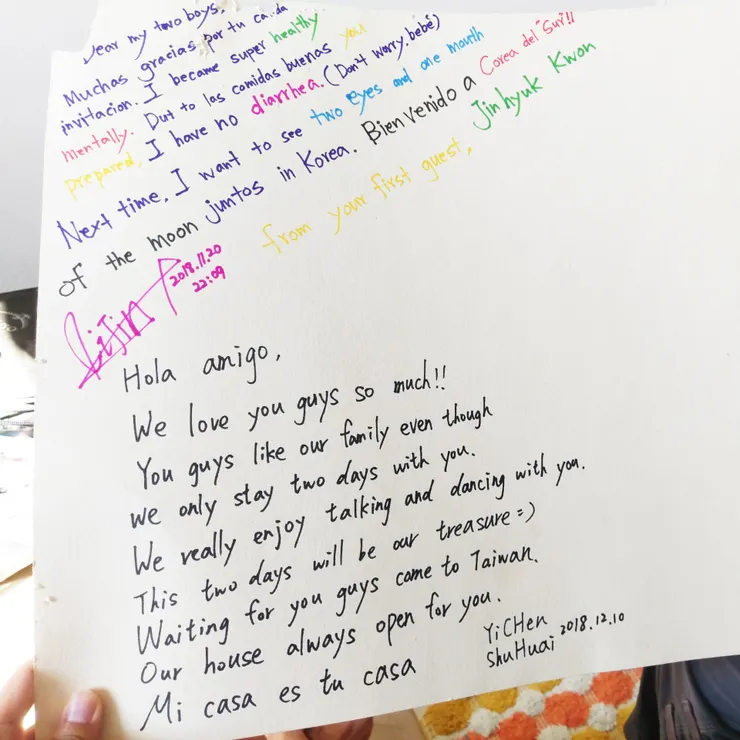 Dear my two boys,
Muchas gracias por tu ca.da
invitacion. I became super healthy
mentally. Dut to las comidas buenas you
prepared, I have no diarrhea. (Don't worry, bebé)
Next time, I want to see two eyes and one mouth
of the moon juntos in Korea. Bienvenido a Corea del "Sur"!!
from your first guest, Jinhyuk Kwon
2018.11.20
22:09
Hola amigo,
We love you guys so much!!
You guys like our family even though
we only stay two days with you.
We really enjoy talking and dancing with you.
This two days will be our treasure =)
Waiting for you guys come to Taiwan.
Our house always open for you.
Mi casa es tu casa
YiCHen
ShuHuai 2018.12.10